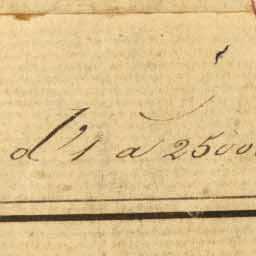 d'1 à 2500